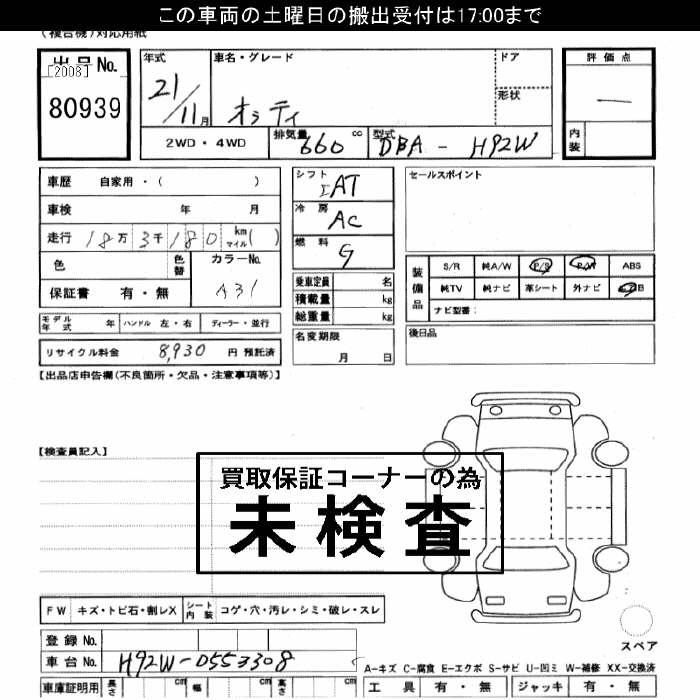 この車両の土曜日の搬出受付は17:00まで
(複合機)対応用紙
出品No.
[2008]
80939
年式
21/11月
車名・グレード
オッティ
ドア
形状
評価点
—
内装
2WD・4WD
排気量 660 cc
型式 DBA - H92W
車歴 自家用・( )
車検 年 月
走行 18万3千180 km マイル( )
色
色替
カラーNo.
A31
保証書 有・無
シフト
IAT
冷房
AC
燃料
G
乗車定員 名
積載量 kg
総重量 kg
セールスポイント
装備品
S/R 純A/W P/S P/W ABS
純TV 純ナビ 革シート 外ナビ
ナビ型番:
モデル年式 年 ハンドル 左・右 ディーラー・並行
リサイクル料金 8,930 円 預託済
名変期限
月 日
後日品
【出品店申告欄(不良箇所・欠品・注意事項等)】
【検査員記入】
買取保証コーナーの為
未検査
FW キズ・トビ石・割レX シート内装 コゲ・穴・汚レ・シミ・破レ・スレ
スペア
登録No.
車台No. H92W-0553308
A-キズ C-腐食 E-エクボ S-サビ U-凹ミ W-補修 XX-交換済
車庫証明用 長さ cm 幅 cm 高さ cm
工具 有・無 ジャッキ 有・無